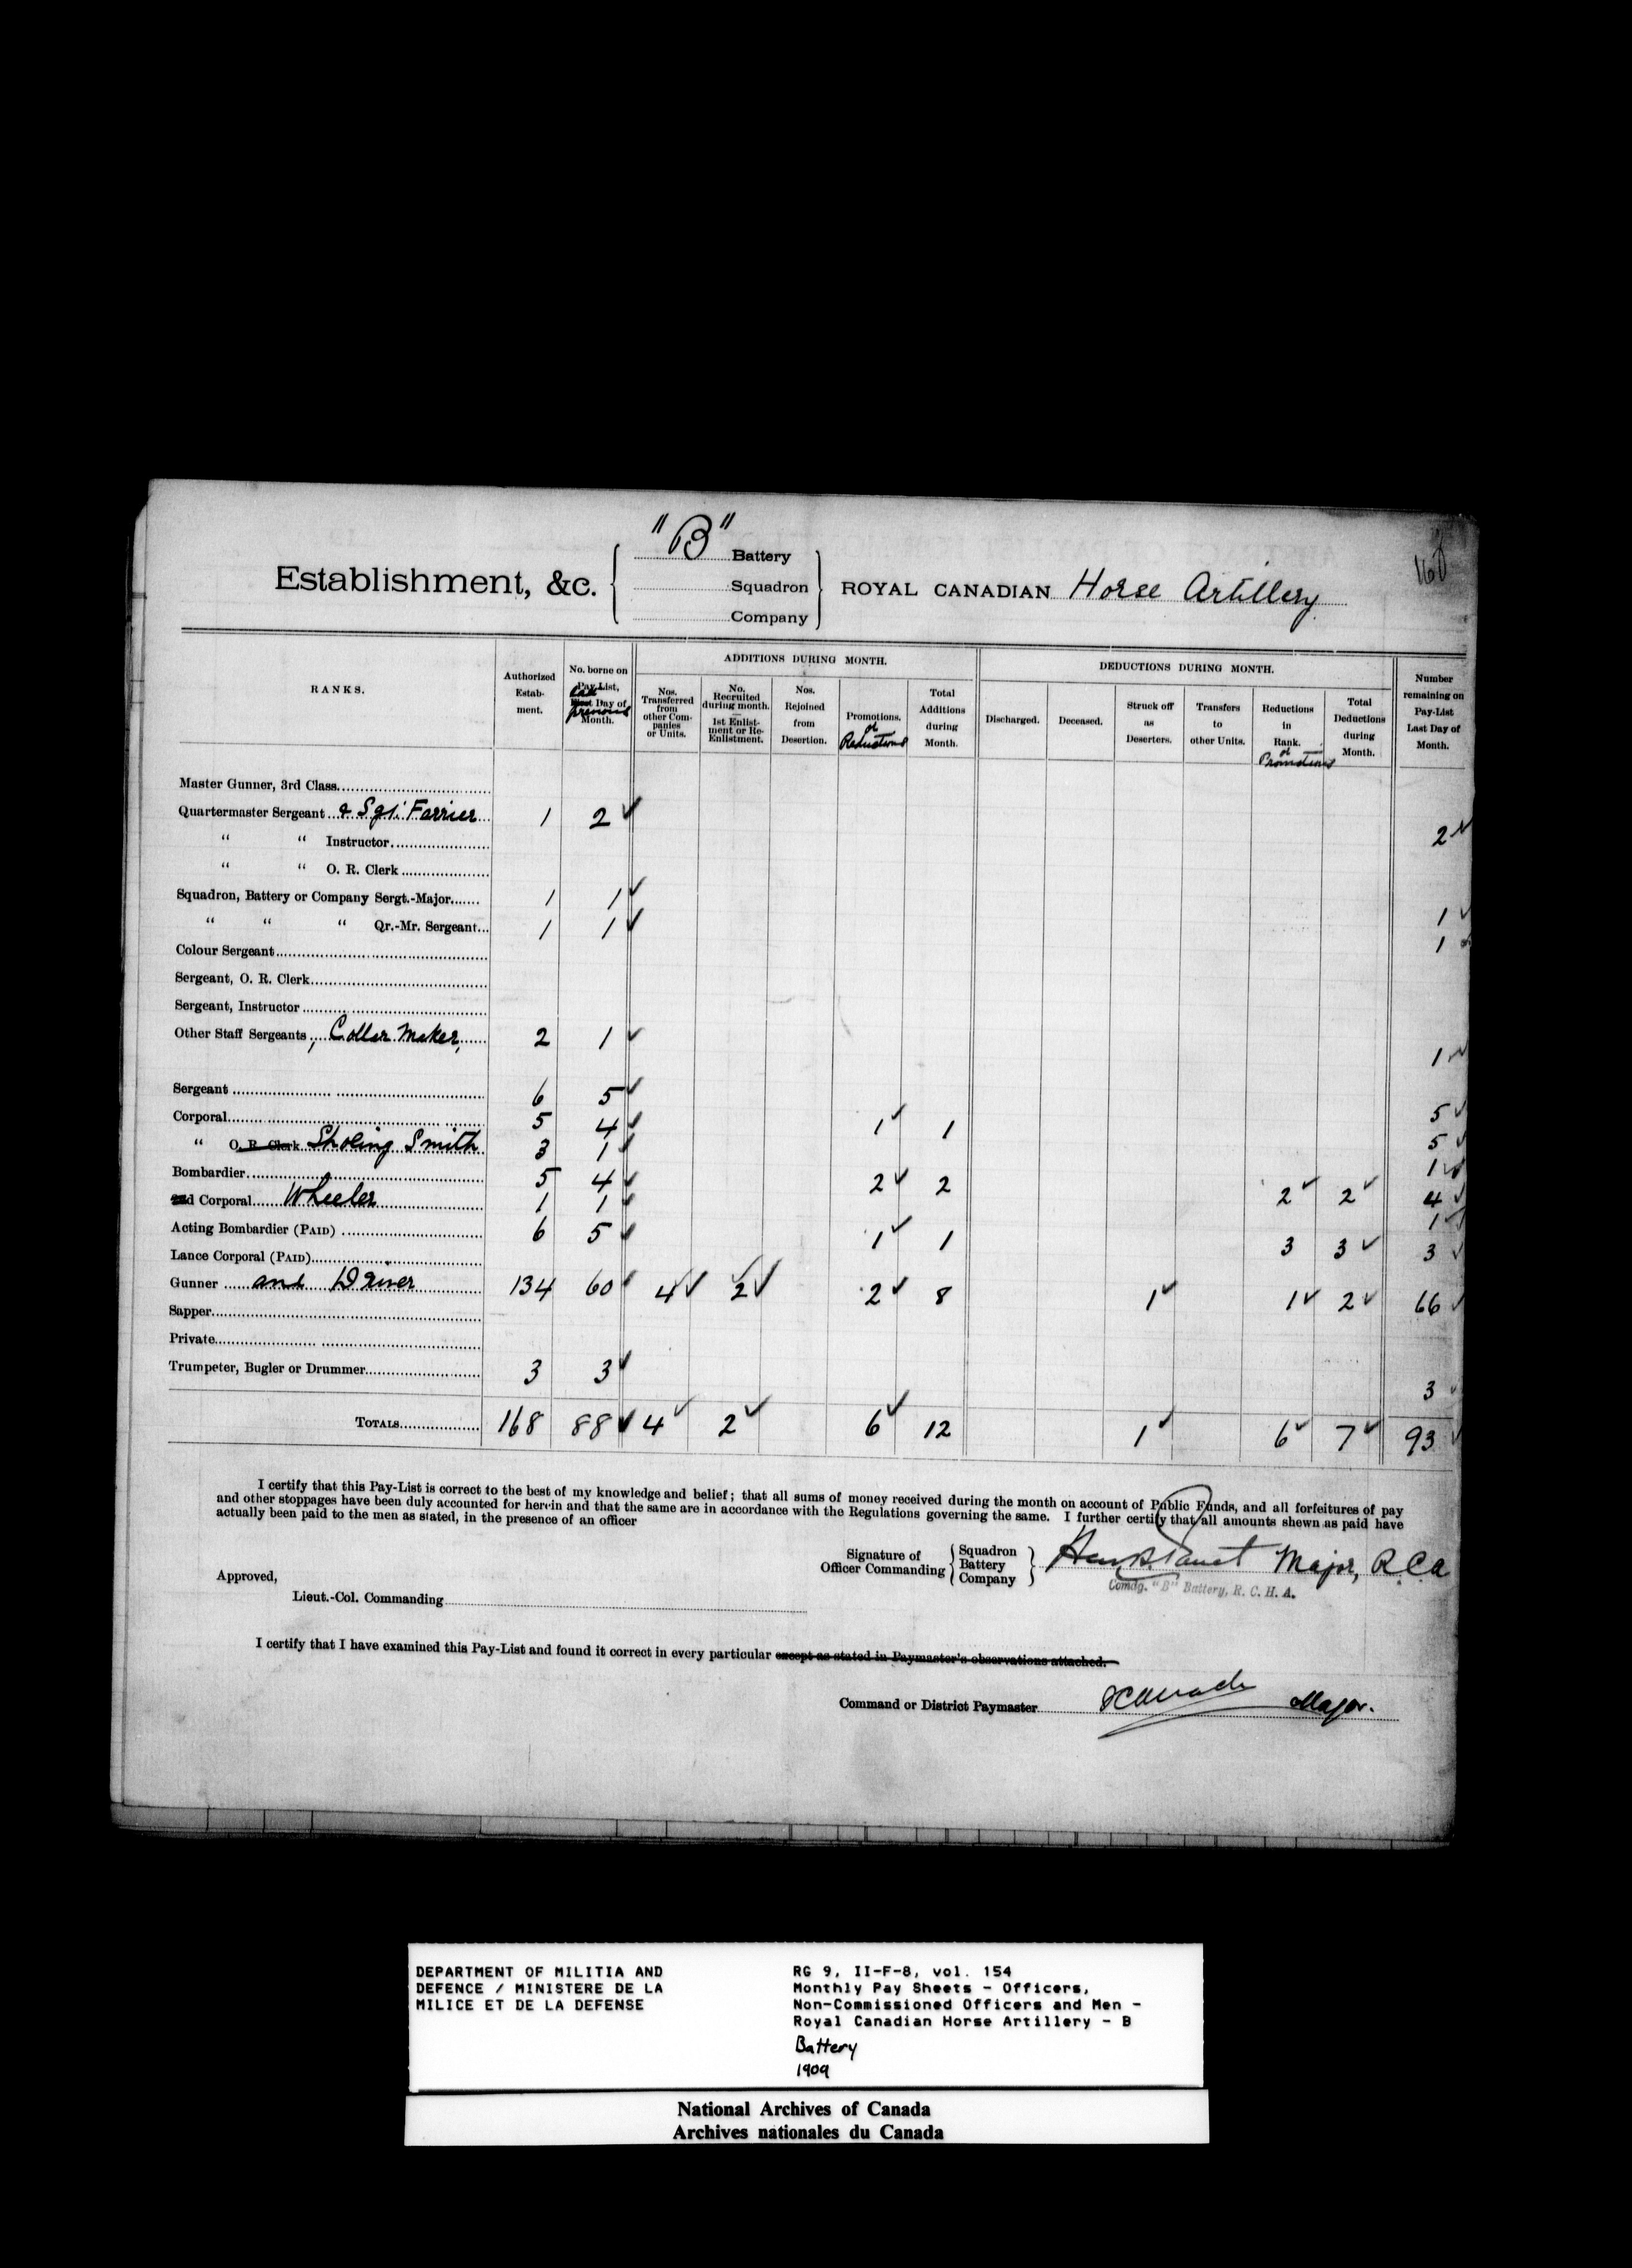 160
"B" Battery
Establishment, &c. Squadron ROYAL CANADIAN Horse Artillery
Company
RANKS. Authorized Establishment. No. borne on Pay-List, Last Day of previous Month. ADDITIONS DURING MONTH. DEDUCTIONS DURING MONTH. Number remaining on Pay-List Last Day of Month.
Nos. Transferred from other Companies or Units. No. Recruited during month. — 1st Enlistment or Re-Enlistment. Nos. Rejoined from Desertion. Promotions. or Reductions Total Additions during Month. Discharged. Deceased. Struck off as Deserters. Transfers to other Units. Reductions in Rank. or Promotions Total Deductions during Month.
Master Gunner, 3rd Class
Quartermaster Sergeant & Sgt. Farrier 1 2 ✓ 2 ✓
" " Instructor
" " O. R. Clerk
Squadron, Battery or Company Sergt.-Major 1 1 ✓ 1 ✓
" " " Qr.-Mr. Sergeant 1 1 ✓ 1 ✓
Colour Sergeant
Sergeant, O. R. Clerk
Sergeant, Instructor
Other Staff Sergeants, Collar Maker, 2 1 ✓ 1 ✓
Sergeant 6 5 ✓ 5 ✓
Corporal 5 4 ✓ 1 ✓ 1 5 ✓
" O. R. Clerk Shoeing Smith 3 1 ✓ 1 ✓
Bombardier 5 4 ✓ 2 ✓ 2 2 ✓ 2 ✓ 4 ✓
2nd Corporal Wheeler 1 1 ✓ 1 ✓
Acting Bombardier (PAID) 6 5 ✓ 1 ✓ 1 3 3 ✓ 3 ✓
Lance Corporal (PAID)
Gunner and Driver 134 60 ✓ 4 ✓ 2 ✓ 2 ✓ 8 1 ✓ 1 ✓ 2 ✓ 66 ✓
Sapper
Private
Trumpeter, Bugler or Drummer 3 3 ✓ 3 ✓
TOTALS 168 88 ✓ 4 ✓ 2 ✓ 6 ✓ 12 1 ✓ 6 ✓ 7 ✓ 93 ✓
I certify that this Pay-List is correct to the best of my knowledge and belief; that all sums of money received during the month on account of Public Funds, and all forfeitures of pay
and other stoppages have been duly accounted for herein and that the same are in accordance with the Regulations governing the same. I further certify that all amounts shewn as paid have
actually been paid to the men as stated, in the presence of an officer
Signature of Officer Commanding Squadron Battery Company Major, R.C.A
Comdg. "B" Battery, R. C. H. A.
Approved,
Lieut.-Col. Commanding
I certify that I have examined this Pay-List and found it correct in every particular except as stated in Paymaster's observations attached.
Command or District Paymaster Major.
DEPARTMENT OF MILITIA AND
DEFENCE / MINISTERE DE LA
MILICE ET DE LA DEFENSE
RG 9, II-F-8, vol. 154
Monthly Pay Sheets - Officers,
Non-Commissioned Officers and Men -
Royal Canadian Horse Artillery - B
Battery
1909
National Archives of Canada
Archives nationales du Canada